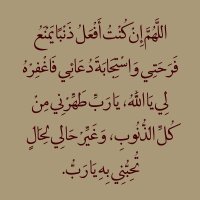 اللَّهُمَّ إِنْ كُنْتُ أَفْعَلُ ذَنْبًا يَمْنَعُ
فَرْحَتِي وَاسْتِجَابَةَ دُعَائِي فَاغْفِرْهُ
لِي يَا اللَّهُ، يَا رَبِّ طَهِّرْنِي مِنْ
كُلِّ الذُّنُوبِ، وَغَيِّرْ حَالِي لِحَالٍ
تُحِبُّنِي بِهِ يَا رَبُّ.